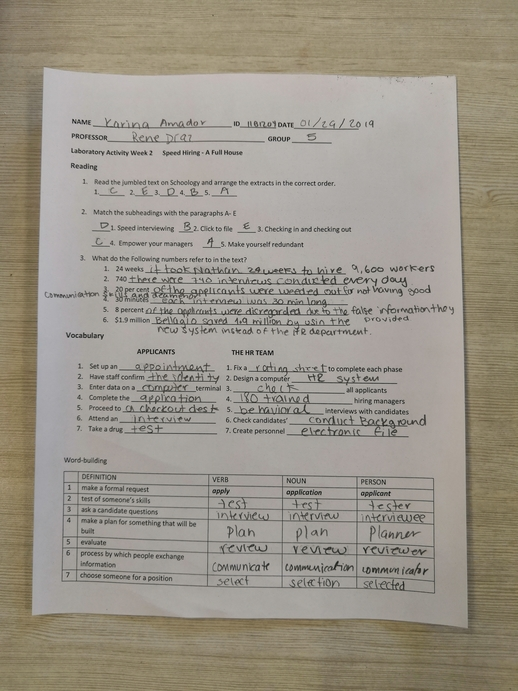 NAME Karina Amador ID 1181209 DATE 01/29/2019
PROFESSOR Rene Diaz GROUP 5
Laboratory Activity Week 2 Speed Hiring - A Full House
Reading
1. Read the jumbled text on Schoology and arrange the extracts in the correct order.
1. C 2. E 3. D 4. B 5. A
2. Match the subheadings with the paragraphs A- E
D 1. Speed interviewing B 2. Click to file E 3. Checking in and checking out
C 4. Empower your managers A 5. Make yourself redundant
3. What do the Following numbers refer to in the text?
1. 24 weeks it took Nathan 24 weeks to hire 9,600 workers
2. 740 there were 740 interviews conducted every day
3. 20 per cent of the applicants were weeded out for not having good
Communication skills and
4. 30 minutes Each interview was 30 min long
5. 8 percent of the applicants were disregarded due to the false information they provided
6. $1.9 million Bellagio saved 1.9 million by usin the
new system instead of the HR department.
Vocabulary
APPLICANTS THE HR TEAM
1. Set up an appointment 1. Fix a rating sheet to complete each phase
2. Have staff confirm the identity 2. Design a computer HR system
3. Enter data on a computer terminal 3. check all applicants
4. Complete the application 4. 180 trained hiring managers
5. Proceed to a checkout desk 5. behavioral interviews with candidates
6. Attend an interview 6. Check candidates' conduct Background
7. Take a drug test 7. Create personnel electronic file
Word-building
DEFINITION VERB NOUN PERSON
1 make a formal request apply application applicant
2 test of someone's skills test test tester
3 ask a candidate questions interview interview interviewee
4 make a plan for something that will be built plan plan Planner
5 evaluate review review reviewer
6 process by which people exchange information communicate communication communicator
7 choose someone for a position select selection selected